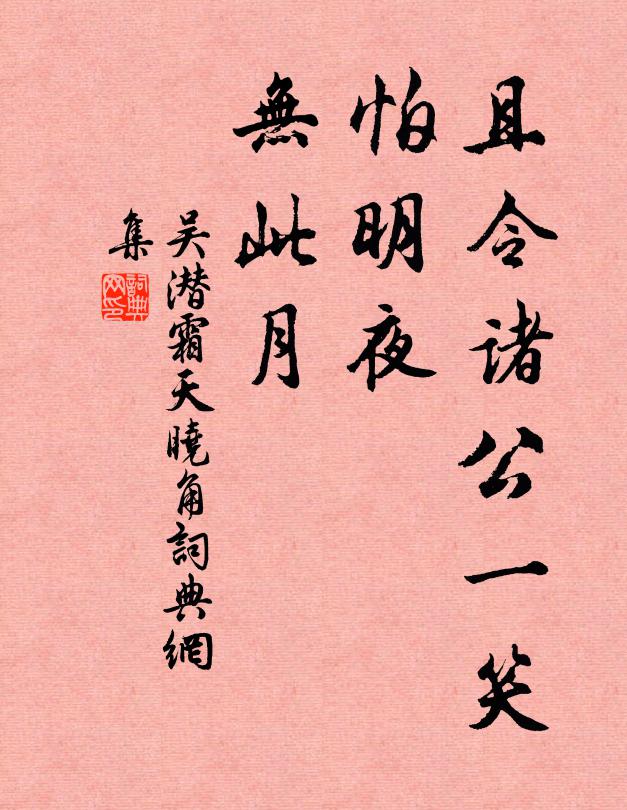 且令諸公一笑
怕明夜
無此月
吴潜霜天曉角詞典網
集
詞典
网印